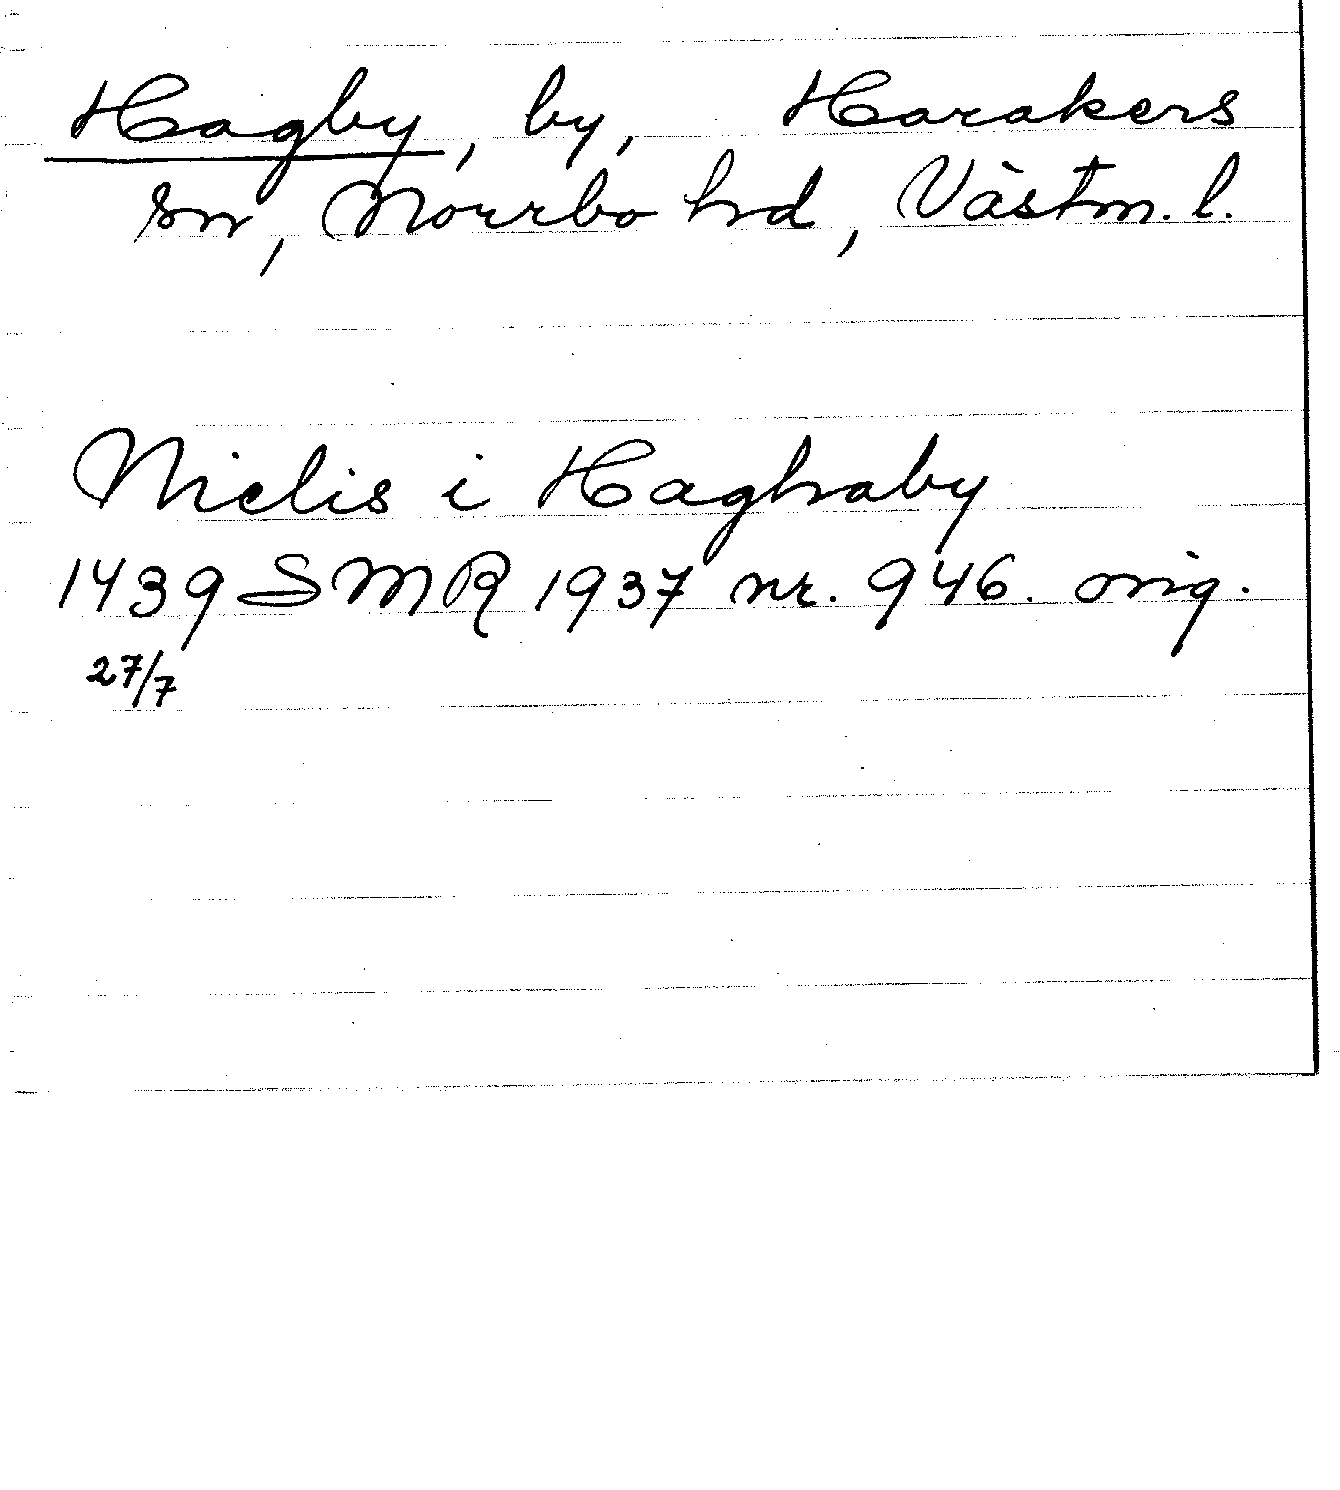 Hagby, by, Harakers
sn, Norrbo hrd, Västm. l.
Nielis i Haghaby
1439 SMR 1937 nr. 946. orig.
27/7